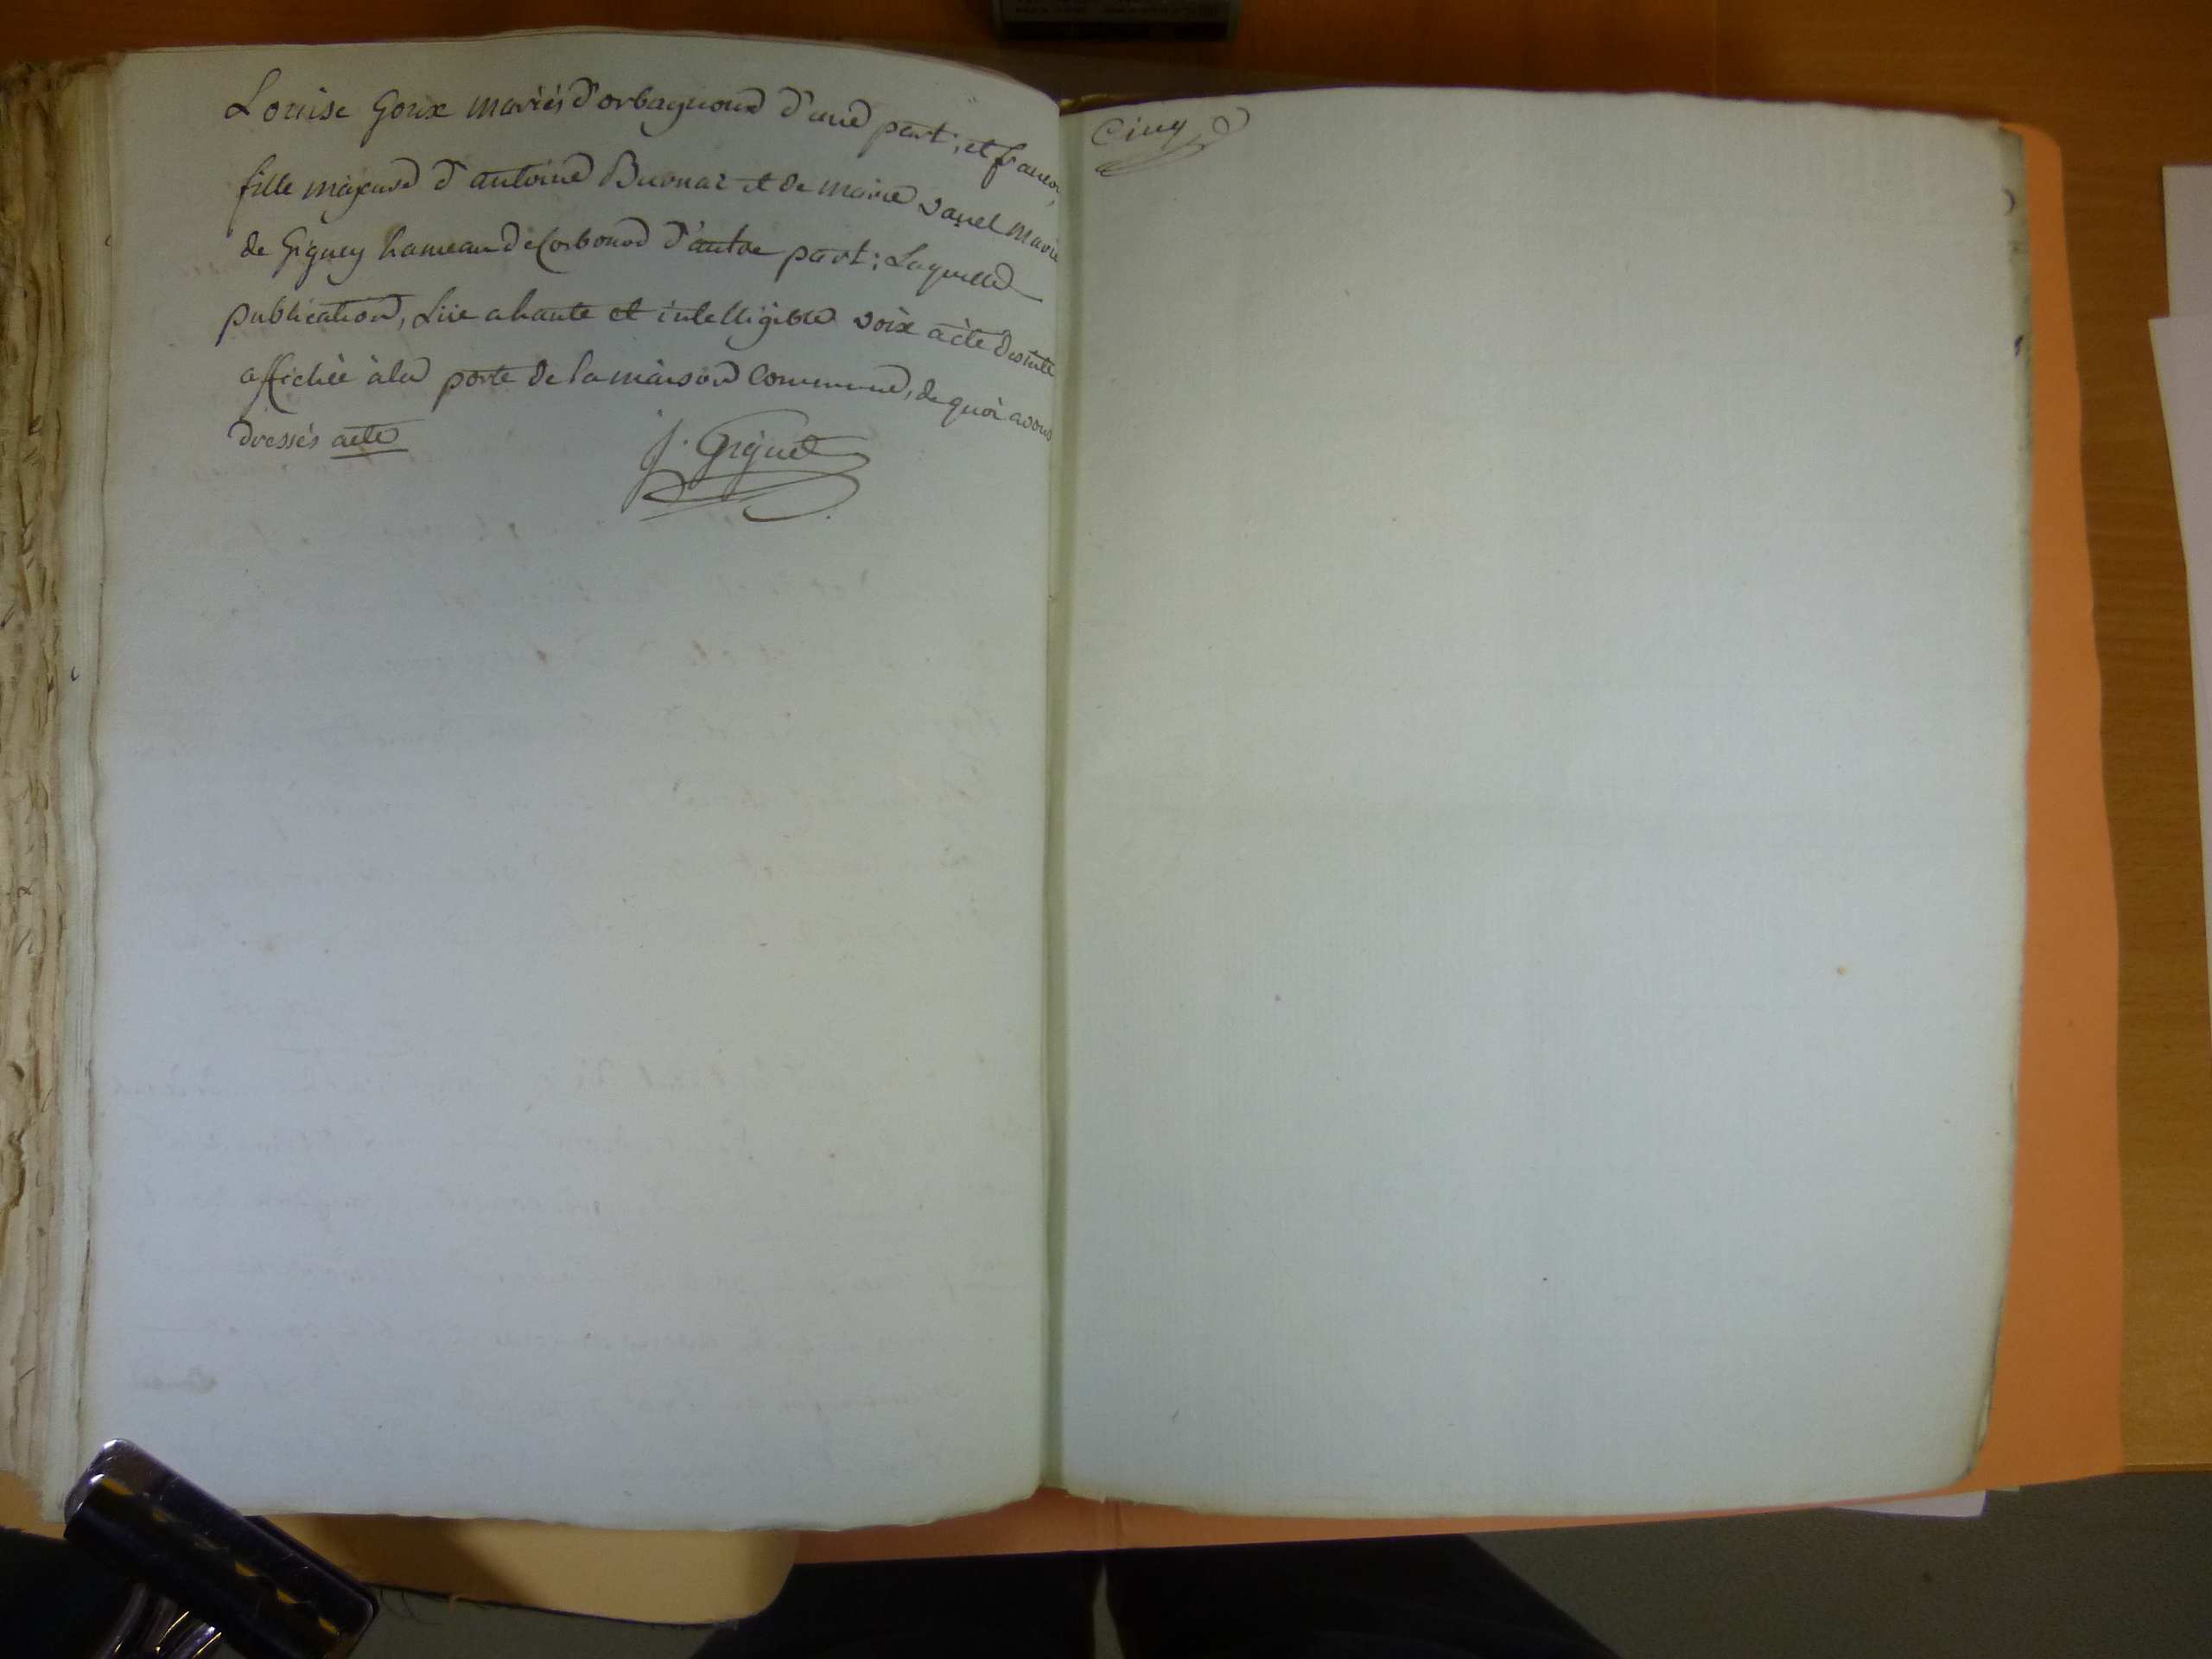 Louise Goux mariés d'orbagnoud d'une part, et
fille majeure d'antoine Burnaz et de marie vauel marié
de Gigney hameau de Corbonod d'autre part; Laquelle
publication, Lüe a haute et intelligible voix a été de suite
affichée à la porte de la maison Commune, de quoi avons
dressés acte
J. Giguet
Cinq